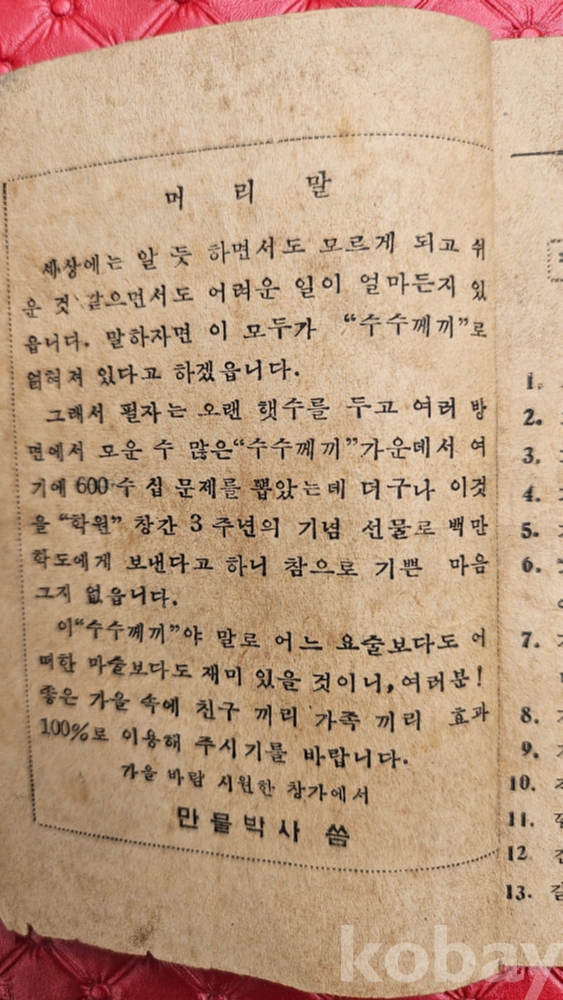 머 리 말
세상에는 알 듯 하면서도 모르게 되고 쉬
운 것 같으면서도 어려운 일이 얼마든지 있
읍니다. 말하자면 이 모두가 “수수께끼”로
얽혀져 있다고 하겠읍니다.
그래서 필자는 오랜 햇수를 두고 여러 방
면에서 모운 수 많은“수수께끼”가운데서 여
기에 600수 십 문제를 뽑았는데 더구나 이것
을 “학원” 창간 3 주년의 기념 선물로 백만
학도에게 보낸다고 하니 참으로 기쁜 마음
그지 없읍니다.
이“수수께끼”야 말로 어느 요술보다도 어
떠한 마술보다도 재미 있을 것이니, 여러분!
좋은 가을 속에 친구 끼리 가족 끼리 효과
100%로 이용해 주시기를 바랍니다.
가을 바람 시원한 창가에서
만물박사 씀
1.
2.
3.
4.
5.
6.
7.
8.
9.
10.
11.
12
13.
kobay